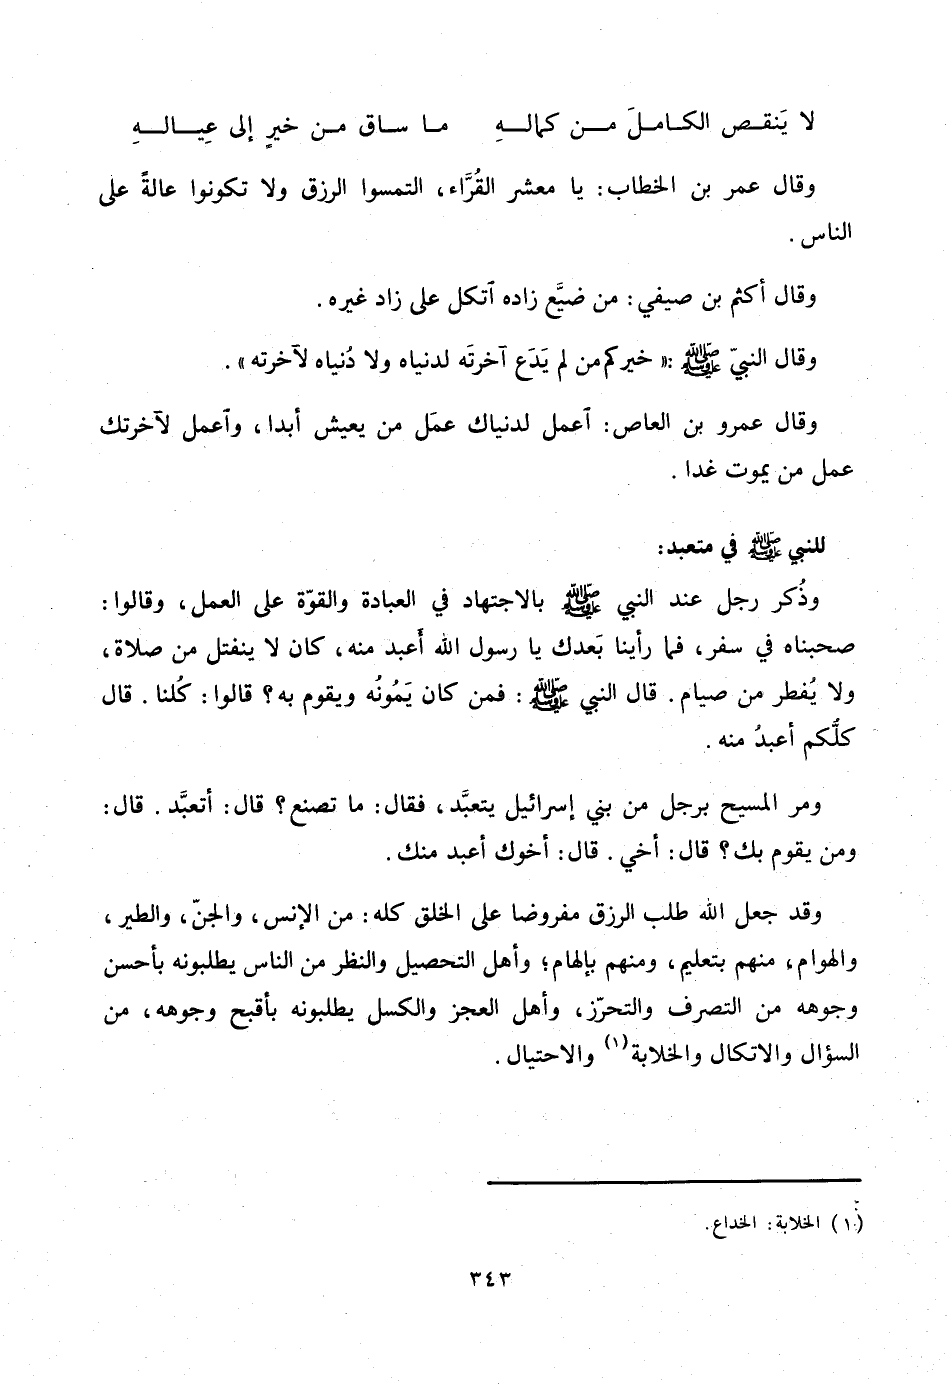 لا يَنقـص الكـامـلَ مـن كمالـهِ    مـا سـاق مـن خيرٍ إلى عِيـالـهِ
وقال عمر بن الخطاب: يا معشر القُرَّاء، التمسوا الرزق ولا تكونوا عالةً على
الناس.
وقال أكثم بن صيفي: من ضيَّع زاده آتكل على زاد غيره.
وقال النبيّ ﷺ: « خيركم من لم يَدَع آخرتَه لدنياه ولا دُنياه لآخرته ».
وقال عمرو بن العاص: آعمل لدنياك عمَل من يعيش أبدا، وآعمل لآخرتك
عمل من يموت غدا.
للنبي ﷺ في متعبد:
وذُكر رجل عند النبي ﷺ بالاجتهاد في العبادة والقوّة على العمل، وقالوا:
صحبناه في سفر، فما رأينا بَعدك يا رسول الله أَعبد منه، كان لا ينفتل من صلاة،
ولا يُفطر من صيام. قال النبي ﷺ: فمن كان يَمُونُه ويقوم به؟ قالوا: كُلنا. قال
كلُّكم أعبدُ منه.
ومر المسيح برجل من بني إسرائيل يتعبَّد، فقال: ما تصنع؟ قال: أتعبَّد. قال:
ومن يقوم بك؟ قال: أخي. قال: أخوك أعبد منك.
وقد جعل الله طلب الرزق مفروضا على الخلق كله: من الإنس، والجنّ، والطير،
والهوام، منهم بتعليم، ومنهم بإلهام؛ وأهل التحصيل والنظر من الناس يطلبونه بأحسن
وجوهه من التصرف والتحرّز، وأهل العجز والكسل يطلبونه بأقبح وجوهه، من
السؤال والاتكال والخلابة(١) والاحتيال.
(١) الخلابة: الخداع.
٣٤٣